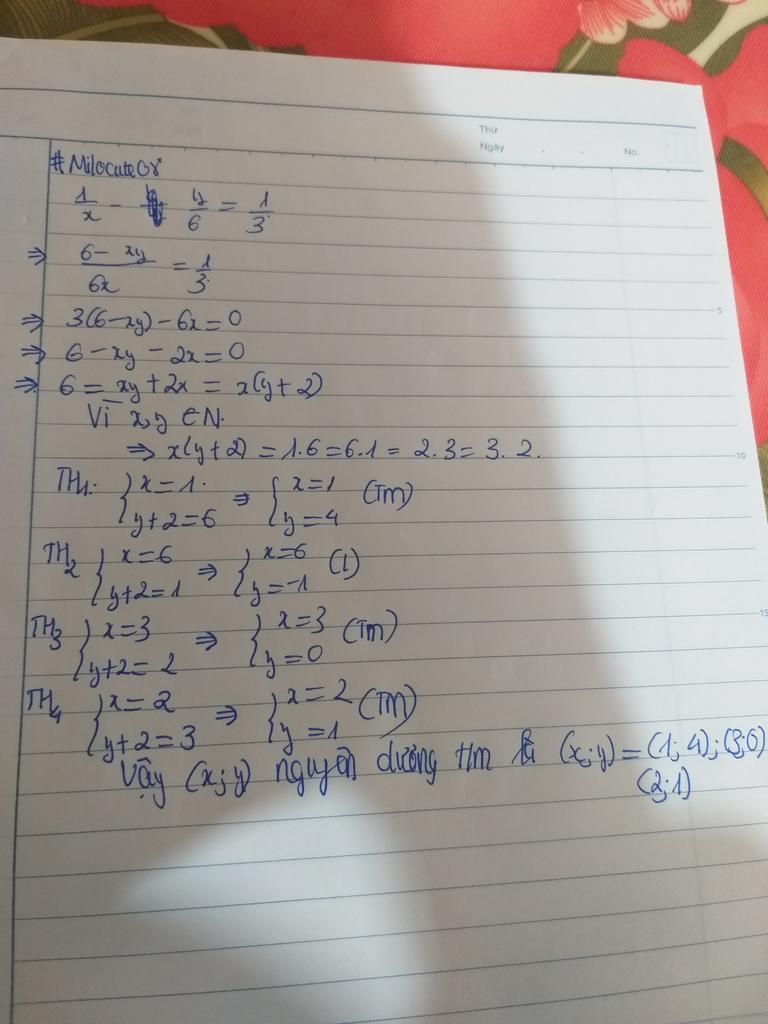 Thứ
Ngày . . No.
#MilocuteGr
1/x - y/6 = 1/3
⇒ (6 - xy)/6x = 1/3
⇒ 3(6-xy) - 6x = 0
5
⇒ 6 - xy - 2x = 0
⇒ 6 = xy + 2x = x(y+2)
Vì x,y ∈ N.
⇒ x(y+2) = 1.6 = 6.1 = 2.3 = 3.2.
10
TH1. { x=1. y+2=6 ⇒ { x=1 y=4 (Tm)
TH2 { x=6 y+2=1 ⇒ { x=6 y=-1 (l)
15
TH3 { x=3 y+2=2 ⇒ { x=3 y=0 (Tm)
TH4 { x=2 y+2=3 ⇒ { x=2 y=1 (TM)
Vậy (x;y) nguyên dương tìm là (x;y) = (1;4);(3;0)
(2;1)